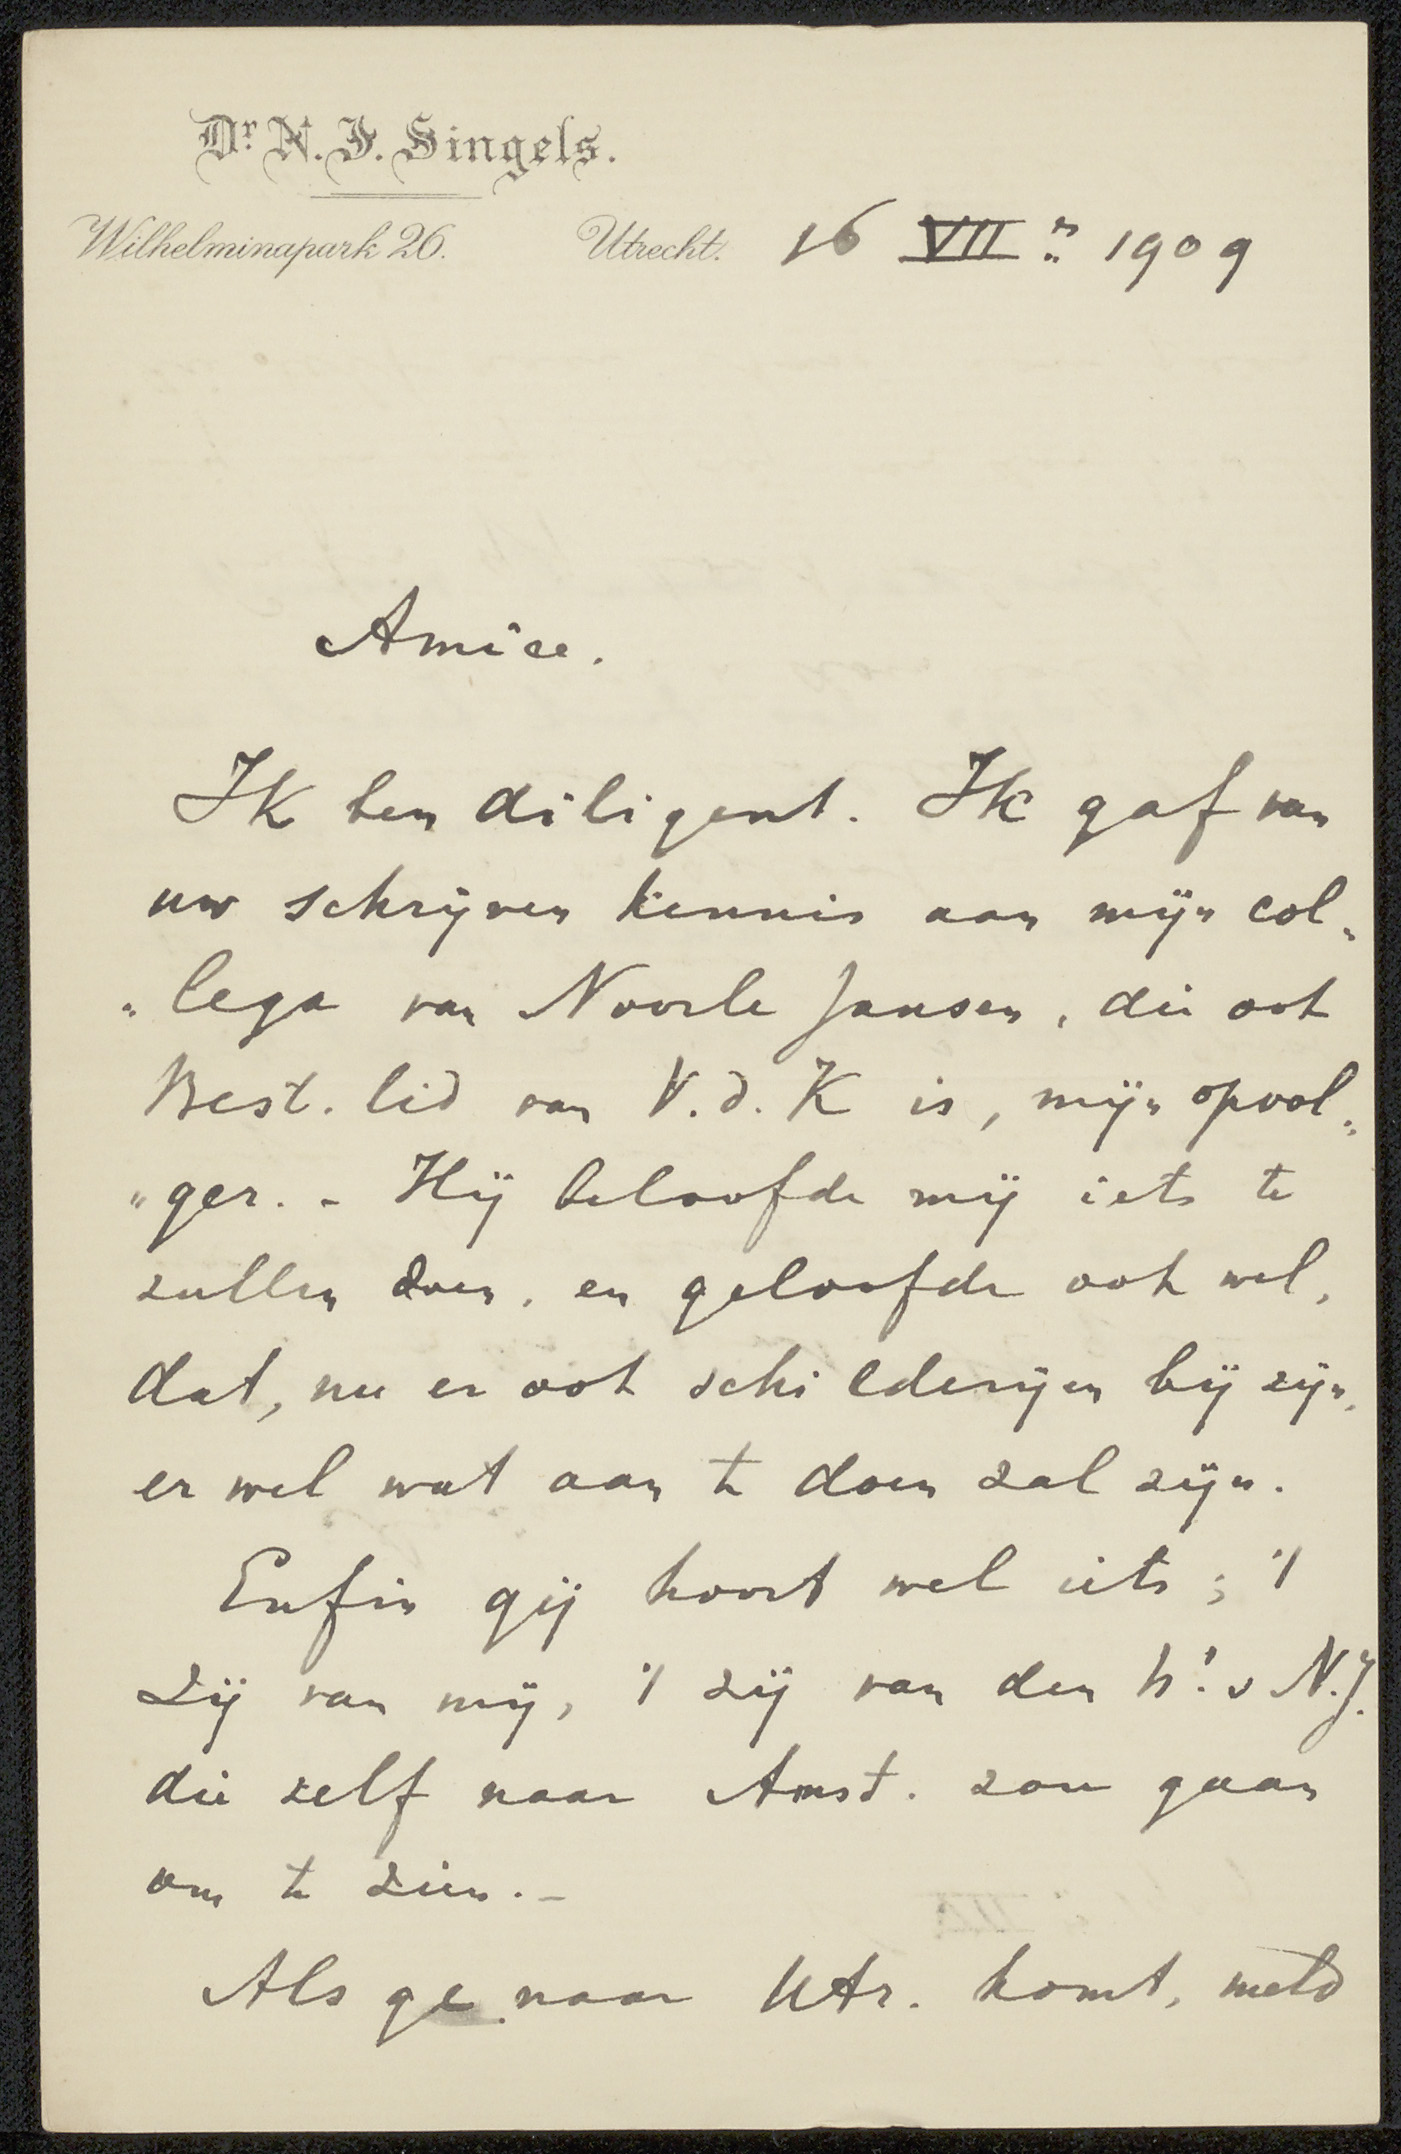 Dr. N. J. Singels.
Wilhelminapark 26. Utrecht. 16 VII 1909
Amice.
Ik ben diligent. Ik gaf van
uw schrijven kennis aan mijn col„
„lega van Noorle Jansen, die ook
Best. lid van V. d. K is, mijn opvol„
„ger. - Hij beloofde mij iets te
zullen doen, en geloofde ook wel,
dat, nu er ook schilderijen bij zijn,
er wel wat aan te doen zal zijn.
Enfin gij hoort wel iets; 't
zij van mij, 't zij van den hr. v N.J.
die zelf naar Amst. zou gaan
om te zien. -
Als ge naar Utr. komt, meld